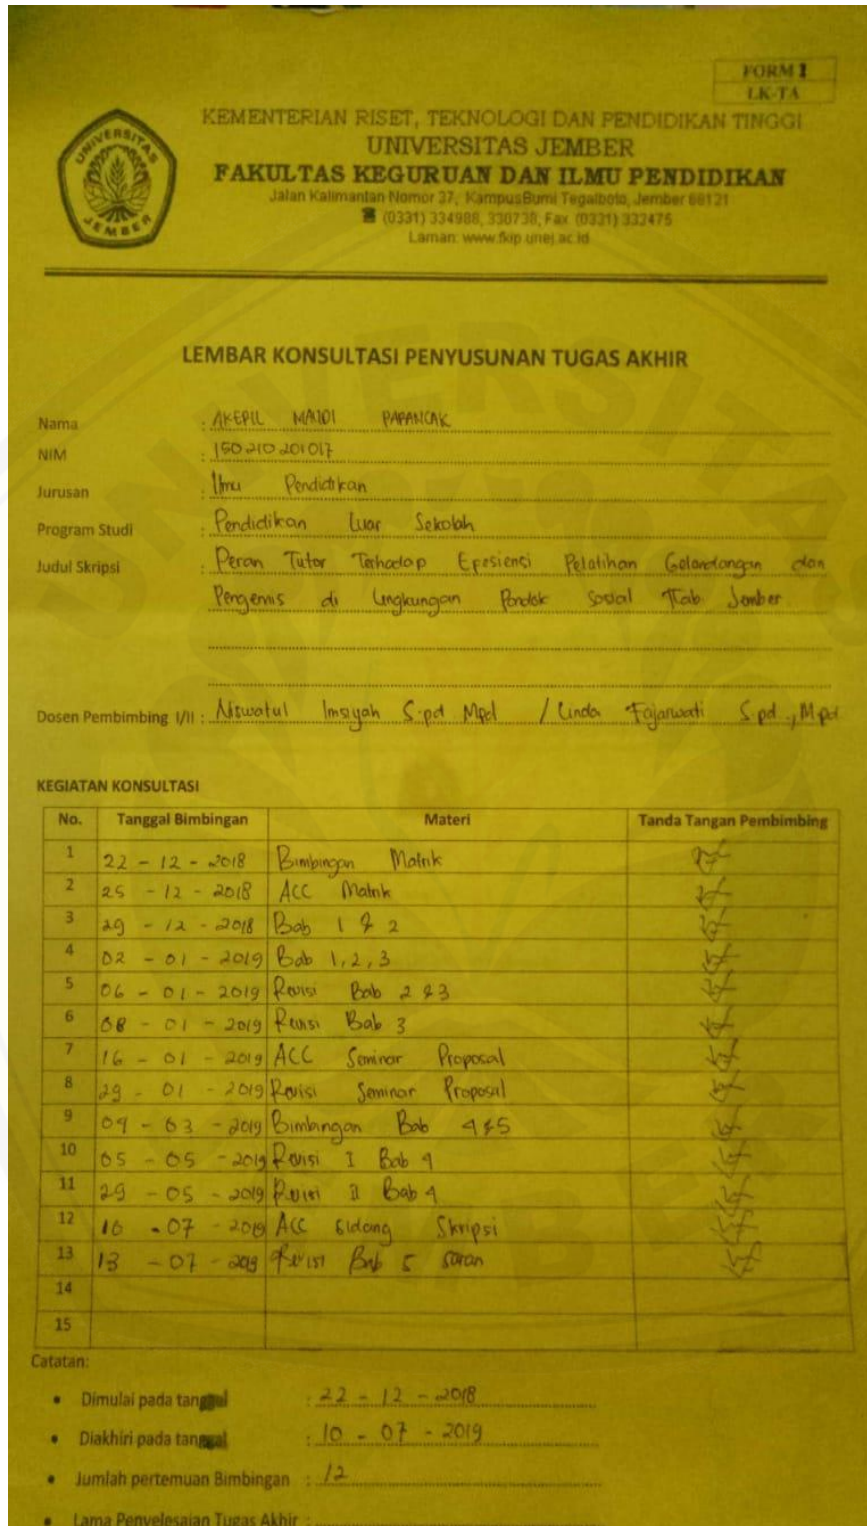 FORM 1
LK-TA
UNIVERSITAS
JEMBER
KEMENTERIAN RISET, TEKNOLOGI DAN PENDIDIKAN TINGGI
UNIVERSITAS JEMBER
FAKULTAS KEGURUAN DAN ILMU PENDIDIKAN
Jalan Kalimantan Nomor 37, KampusBumi Tegalboto, Jember 68121
(0331) 334988, 330738, Fax (0331) 332475
Laman: www.fkip.unej.ac.id
LEMBAR KONSULTASI PENYUSUNAN TUGAS AKHIR
Nama :
NIM : 150210201017
Jurusan : Ilmu Pendidikan
Program Studi : Pendidikan Luar Sekolah
Judul Skripsi : Peran Tutor Terhadap Epesiensi Pelatihan Gelandangan dan
Pengemis di Lingkungan Pondok Sosial Kab. Jember
Dosen Pembimbing I/II : Niswatul Imsiyah S.pd Mpd / Linda Fajarwati S.pd., M.pd
KEGIATAN KONSULTASI
No. Tanggal Bimbingan Materi Tanda Tangan Pembimbing
1 22 - 12 - 2018 Bimbingan Matrik
2 25 - 12 - 2018 ACC Matrik
3 29 - 12 - 2018 Bab 1 & 2
4 02 - 01 - 2019 Bab 1, 2, 3
5 06 - 01 - 2019 Revisi Bab 2 & 3
6 08 - 01 - 2019 Revisi Bab 3
7 16 - 01 - 2019 ACC Seminar Proposal
8 29 - 01 - 2019 Revisi Seminar Proposal
9 04 - 03 - 2019 Bimbingan Bab 4 & 5
10 05 - 05 - 2019 Revisi I Bab 4
11 29 - 05 - 2019 Revisi II Bab 4
12 10 - 07 - 2019 ACC Sidang Skripsi
13 13 - 07 - 2019 Revisi Bab 5 saran
14
15
Catatan:
• Dimulai pada tanggal : 22 - 12 - 2018
• Diakhiri pada tanggal : 10 - 07 - 2019
• Jumlah pertemuan Bimbingan : 12
• Lama Penyelesaian Tugas Akhir :